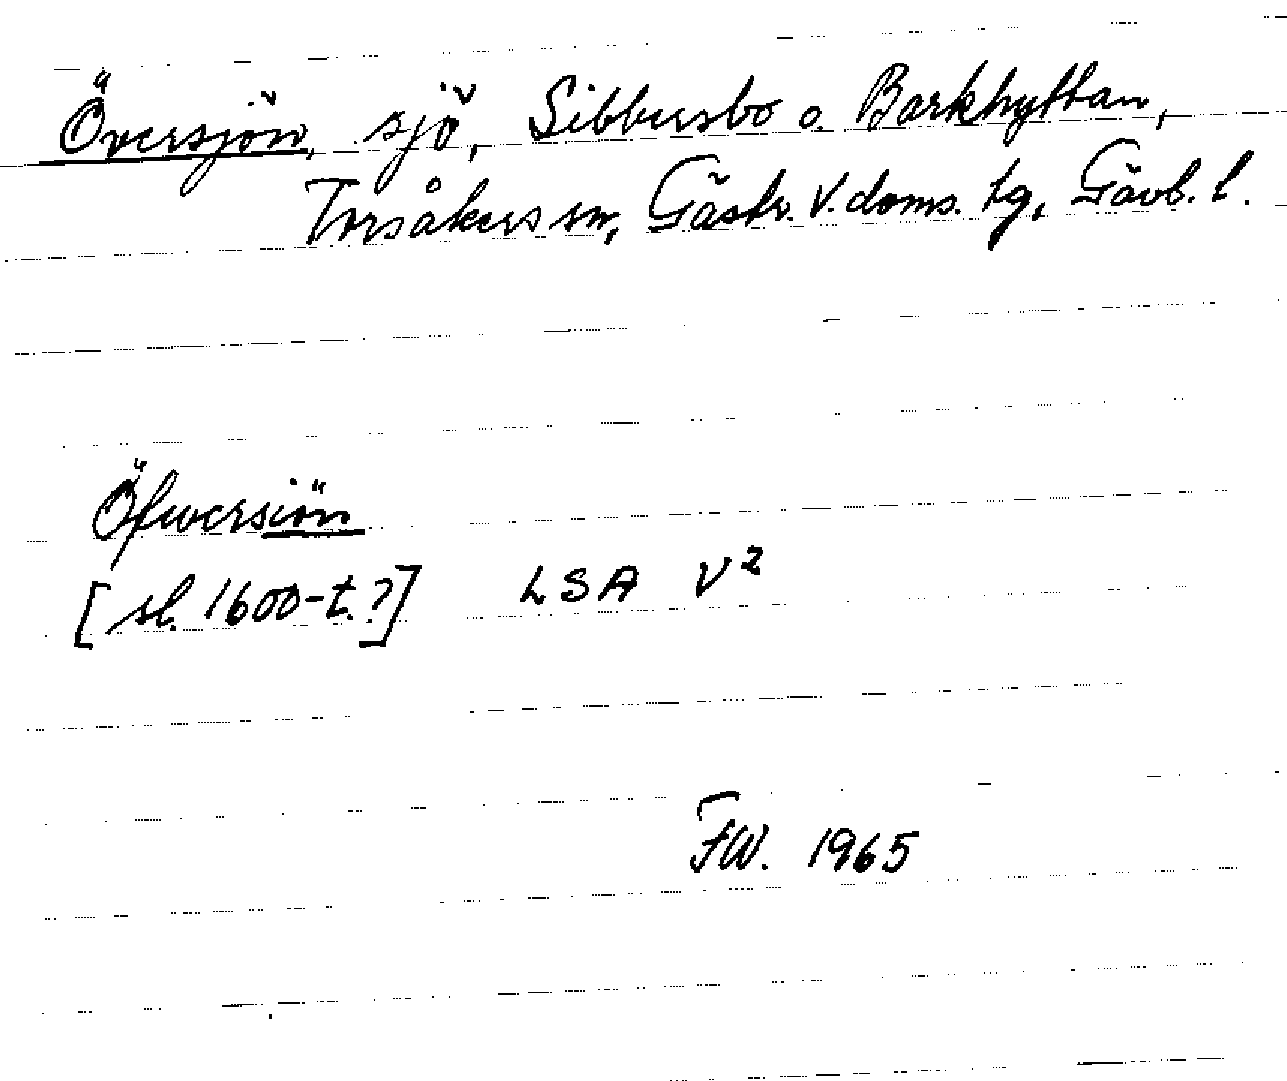 Översjön, sjö, Sibbersbo o. Barkhyttan,
Torsåkers sn, Gästr. V. doms. tg, Gävb. l.
Öfwersiön
[sl. 1600-t.?] LSA V2
FW. 1965